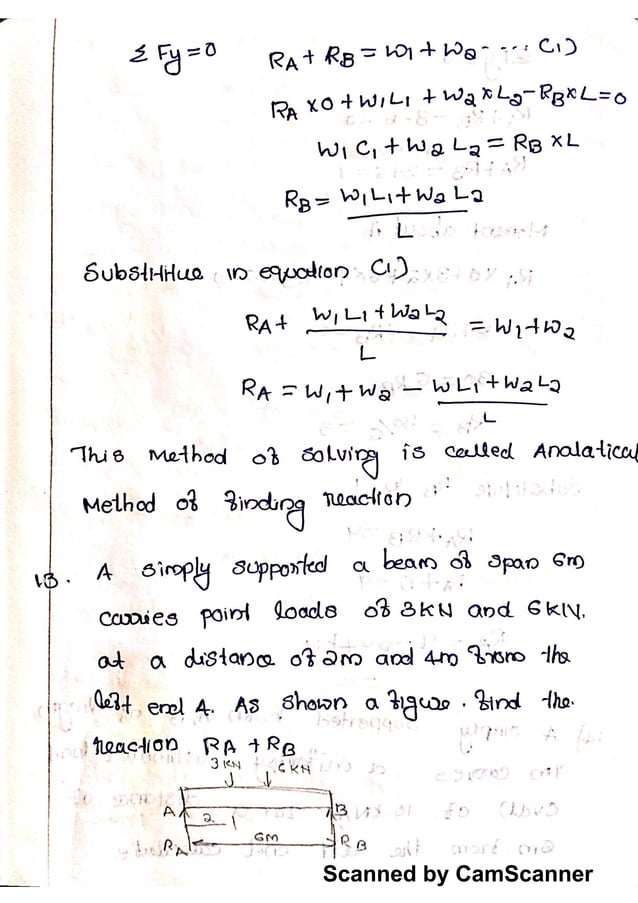 Σ Fy=0 RA + RB = W1 + W2 - ... (1)
RA x0 + W1L1 + W2 x L2 - RB x L = 0
W1 C1 + W2 L2 = RB x L
RB = W1L1 + W2 L2
L
Substitue in equation (1)
RA + W1 L1 + W2 L2 = W1 + W2
L
RA = W1 + W2 - WL1 + W2 L2
L
This Method of solving is called Analatical
Method of finding reaction
13. A simply supported a beam of span 6m
carries point loads of 3KN and 6KN.
at a distance of 2m and 4m from the
left end A. As shown a figure. find the
reaction. RA + RB
3KN 6KN
A B
2
RA 6m RB
Scanned by CamScanner